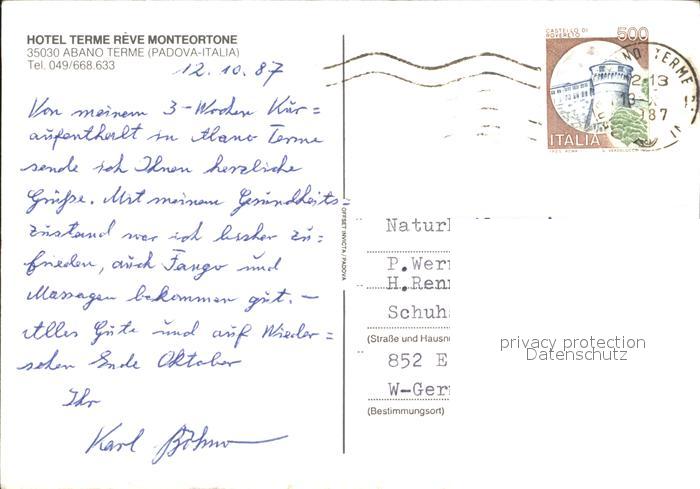 HOTEL TERME RÊVE MONTEORTONE
35030 ABANO TERME (PADOVA-ITALIA)
Tel. 049/668.633
12.10.87
Von meinem 3-Wochen Kur=
aufenthalt in Abano Terme
sende ich Ihnen herzliche
Grüße. Mit meinem Gesundheits
zustand war ich bisher zu=
frieden, auch Fango und
Massagen bekommen gut. –
Alles Gute und auf Wieder=
sehen Ende Oktober
Ihr
Karl Böhm
OFFSET INVICTA / PADOVA
CASTELLO DI
ROVERETO
500
ITALIA
TERME
87
Natur
P.Wer
H.Ren
Schuh
(Straße und Hausn
852 E
W-Ger
(Bestimmungsort)
privacy protection
Datenschutz